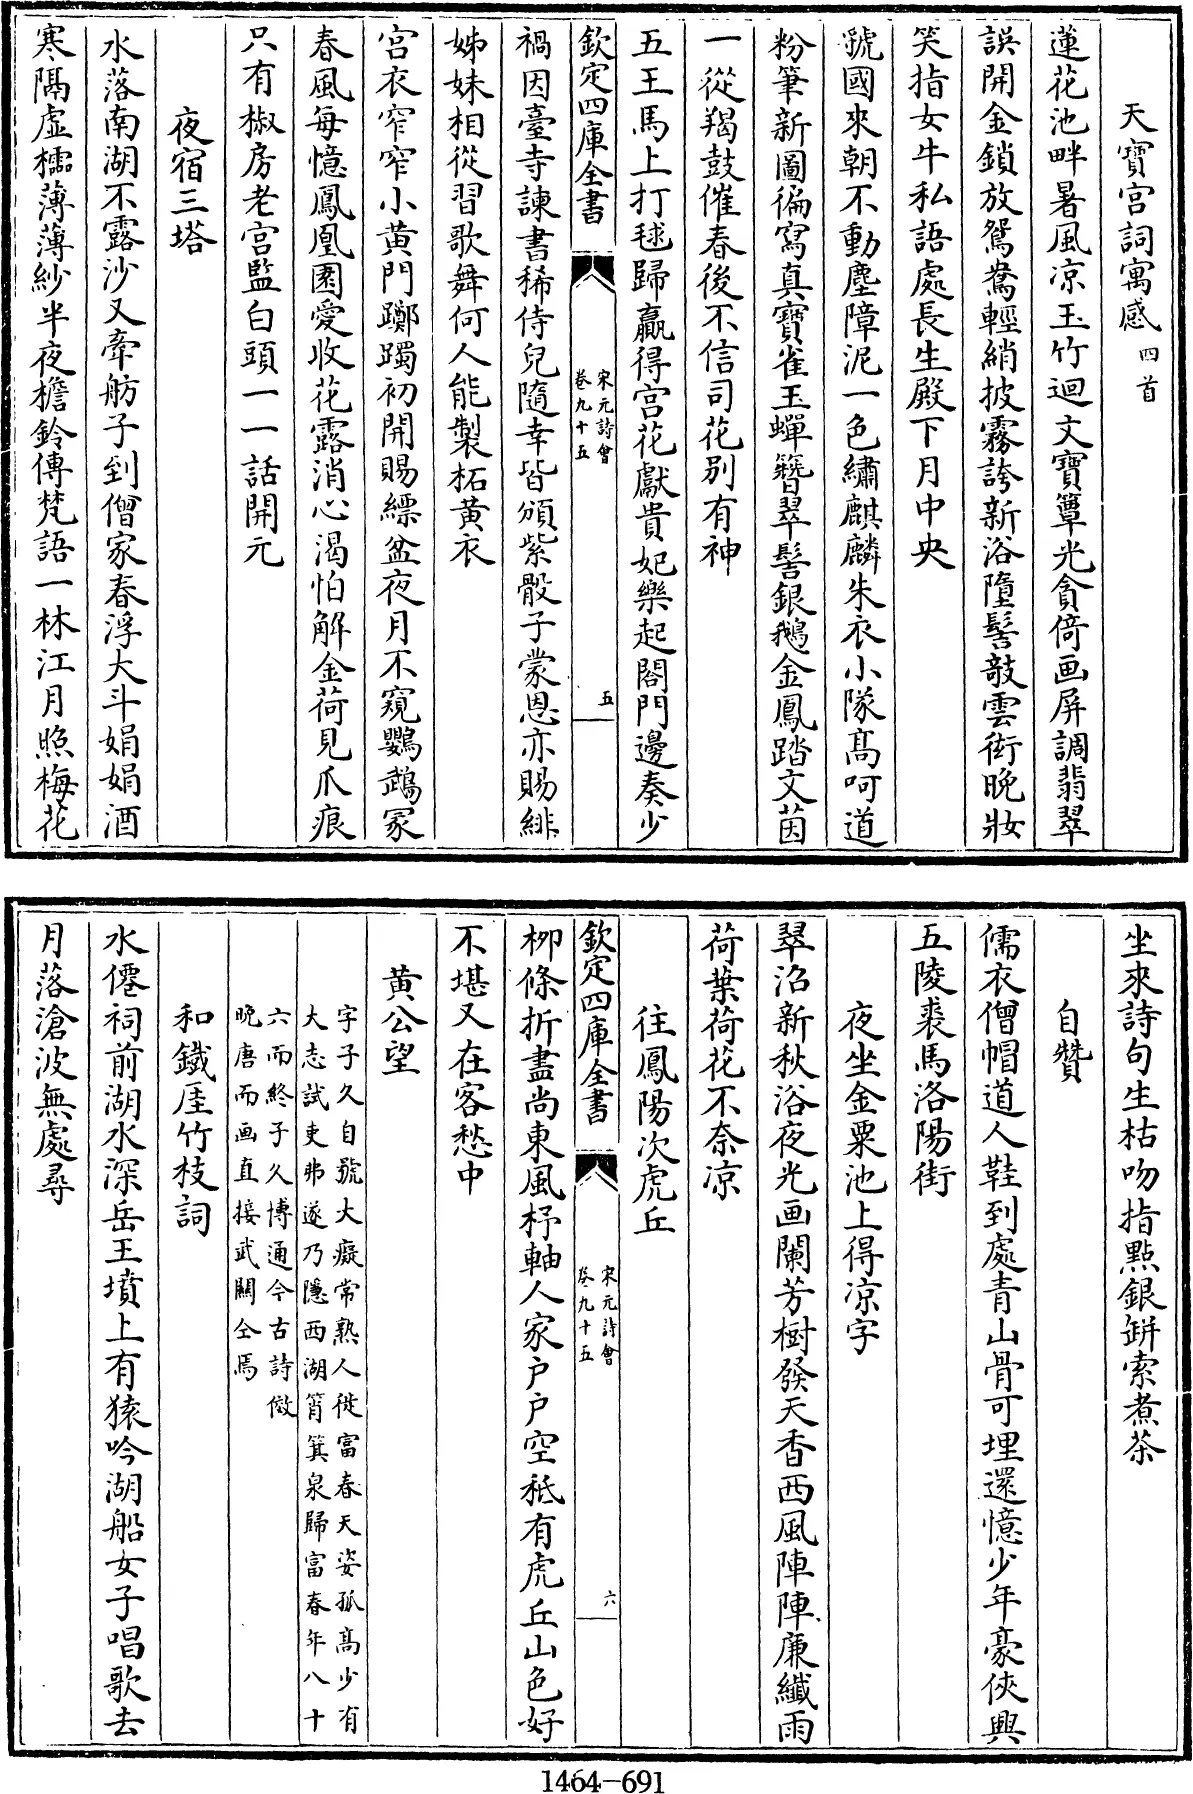 天寶宫詞寓感四首
蓮花池畔暑風凉玉竹迴文寶簟光貪倚画屏調翡翠
誤開金鎖放鴛鴦輕綃披霧誇新浴墮髻敧雲衒晚妝
笑指女牛私語處長生殿下月中央
虢國來朝不動塵障泥一色繡麒麟朱衣小隊髙呵道
粉筆新圖徧寫真寶雀玉蟬簪翠髻銀鵝金鳳踏文茵
一從羯鼓催春後不信司花别有神
五王馬上打毬歸贏得宫花獻貴妃樂起閤門邊奏少
欽定四庫全書
宋元詩會
卷九十五
五
禍因臺寺諫書稀侍兒隨幸皆頒紫骰子蒙恩亦賜緋
姊妹相從習歌舞何人能製柘黄衣
宫衣窄窄小黄門躑躅初開賜縹盆夜月不窺鸚鵡冢
春風每憶鳳凰園愛收花露消心渴怕解金荷見爪痕
只有椒房老宫監白頭一一話開元
夜宿三塔
水落南湖不露沙又牽舫子到僧家春浮大斗娟娟酒
寒隔虚櫺薄薄紗半夜檐鈴傳梵語一林江月照梅花
坐來詩句生枯吻指點銀缾索煮茶
自贊
儒衣僧帽道人鞋到處青山骨可埋還憶少年豪俠興
五陵裘馬洛陽街
夜坐金粟池上得凉字
翠沼新秋浴夜光画闌芳樹發天香西風陣陣廉纖雨
荷葉荷花不奈凉
往鳳陽次虎丘
欽定四庫全書
宋元詩會
卷九十五
六
栁條折盡尚東風杼軸人家户户空秪有虎丘山色好
不堪又在客愁中
黄公望
字子久自號大癡常熟人徙富春天姿孤髙少有
大志試吏弗遂乃隱西湖筲箕泉歸富春年八十
六而終子久博通今古詩倣
晚唐而画直接武關仝焉
和鐵厓竹枝詞
水僊祠前湖水深岳王墳上有猿吟湖船女子唱歌去
月落滄波無處尋
1464-691